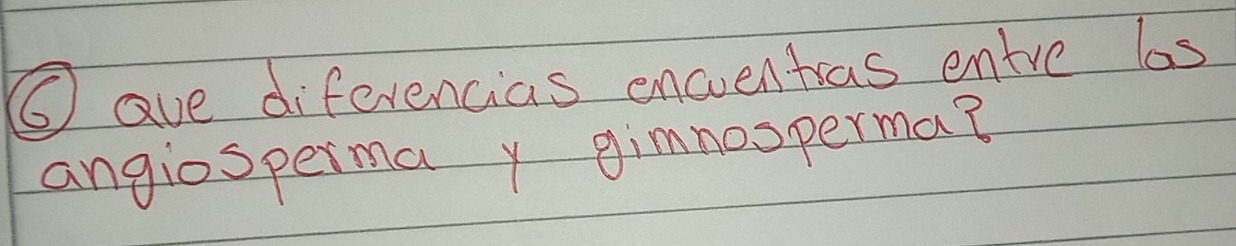 ⑥ Que diferencias encuentras entre las
angiosperma y gimnosperma?